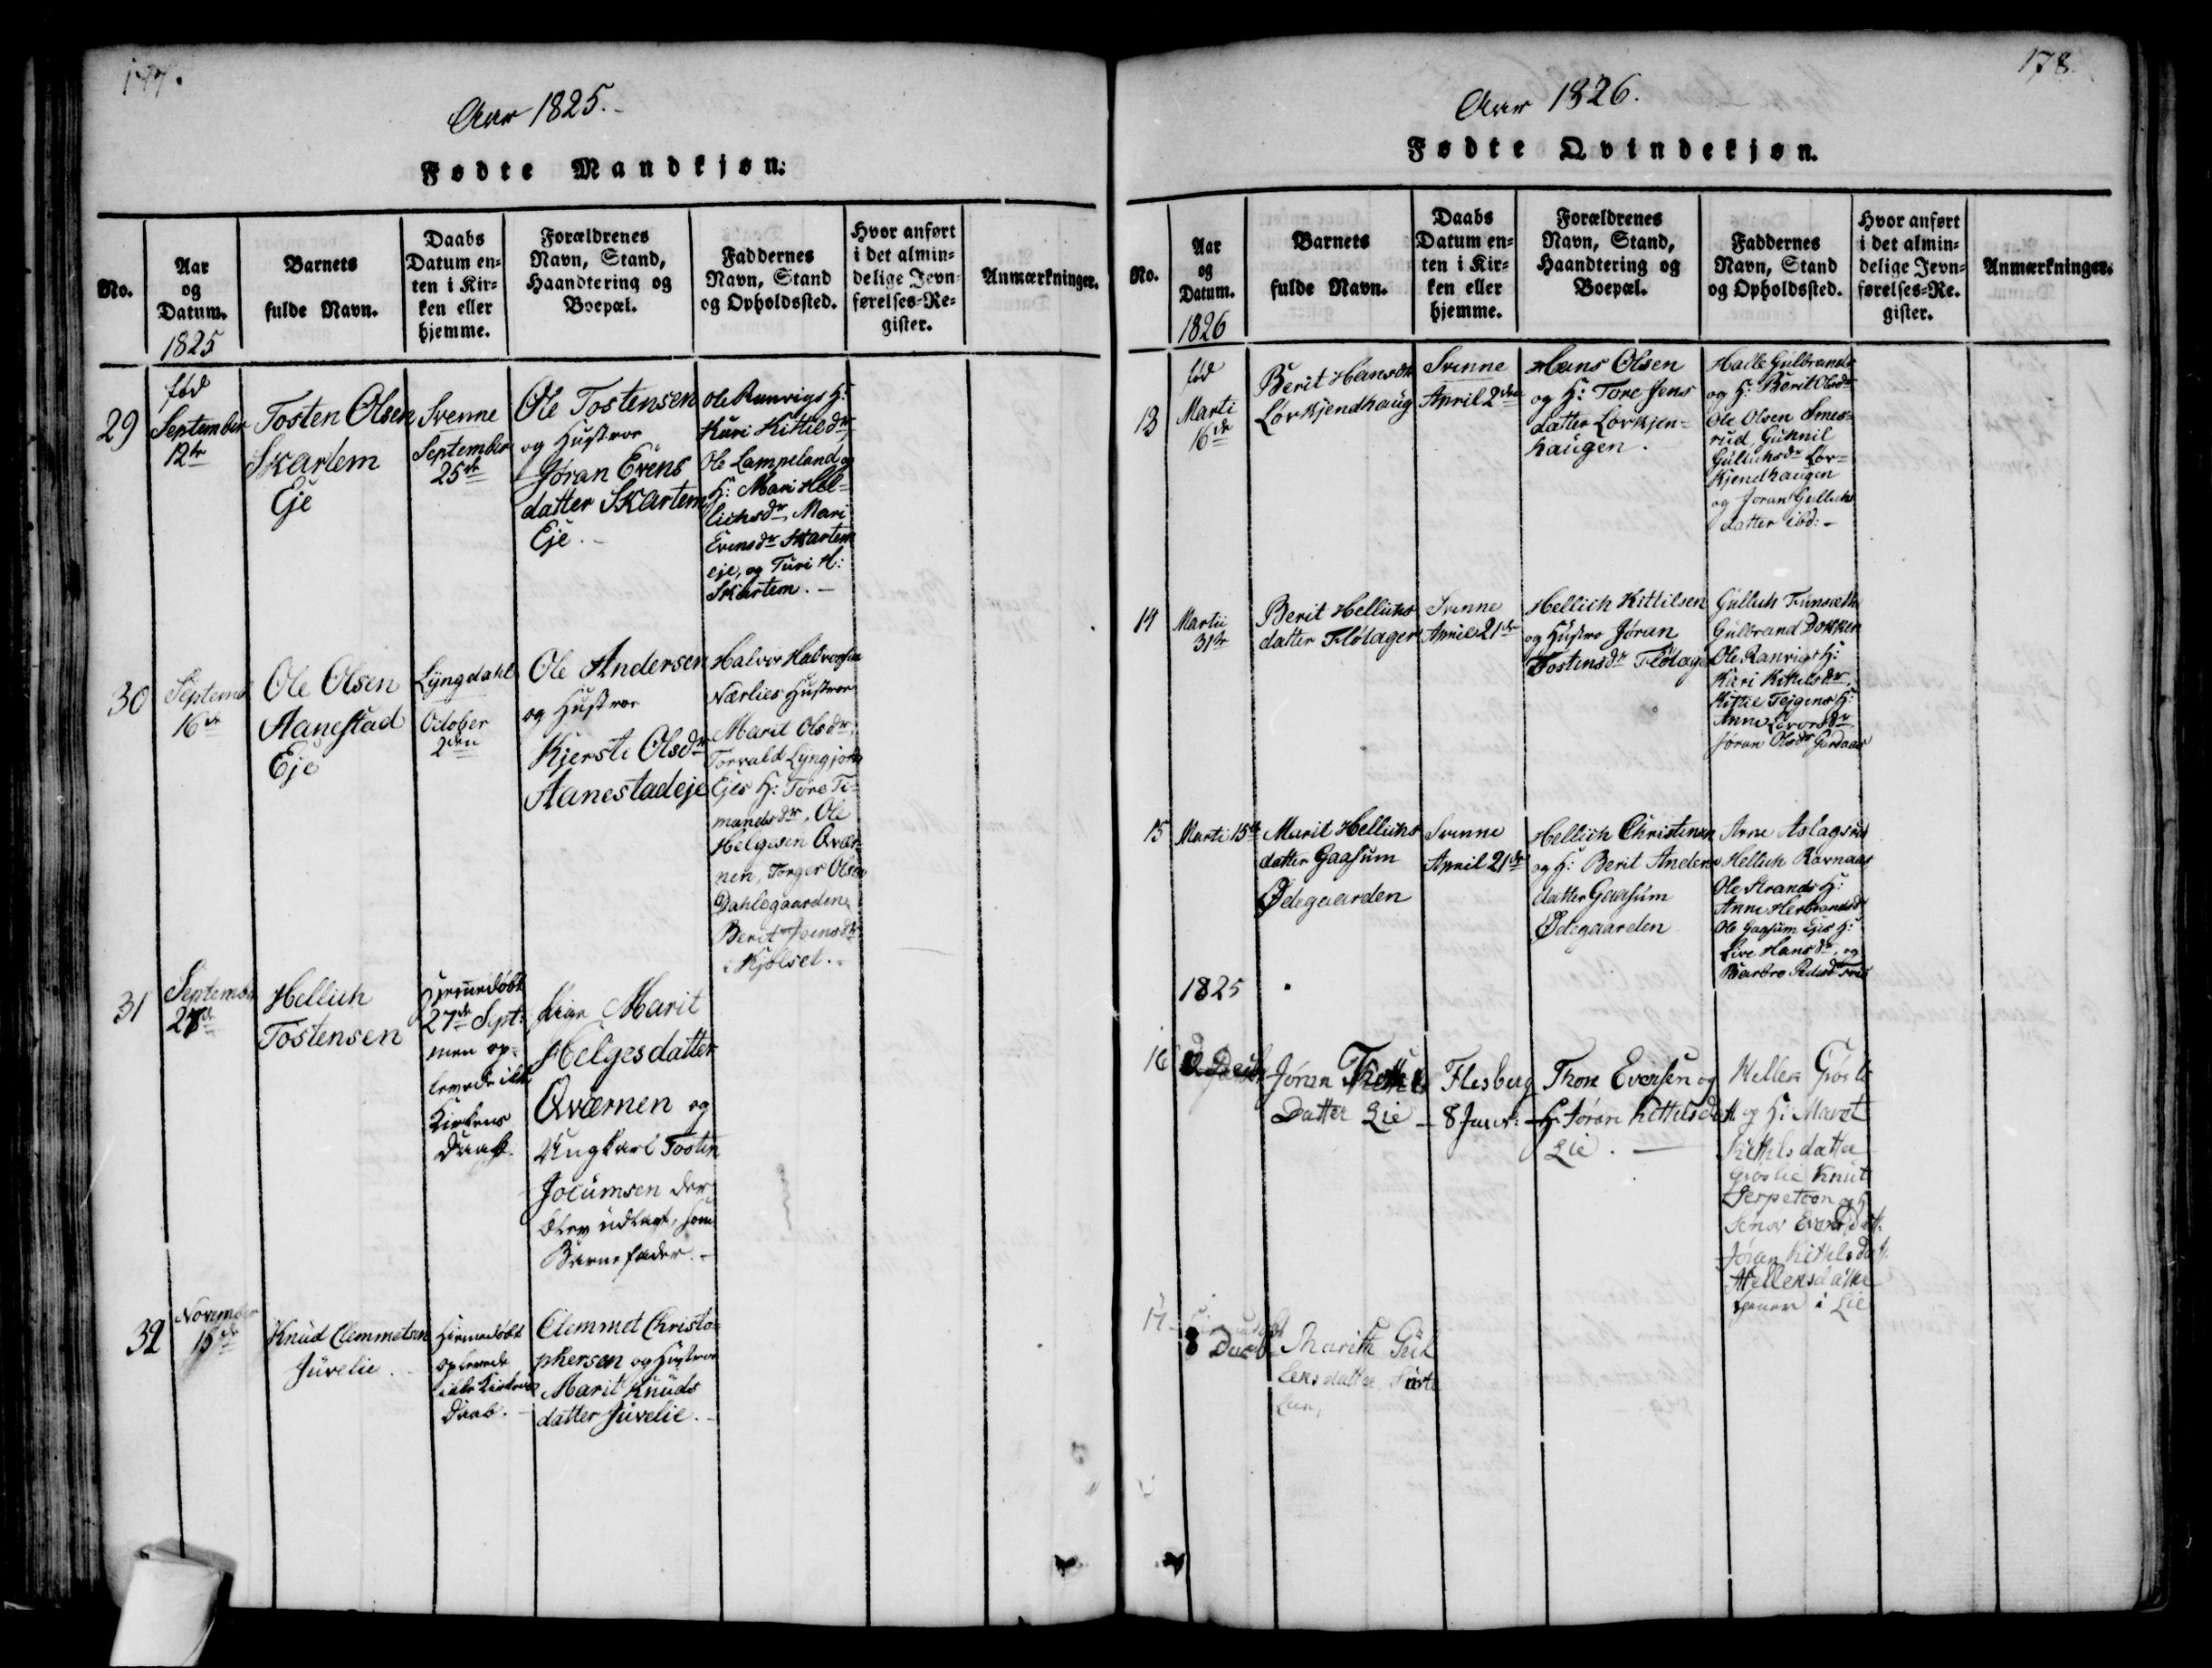 177.
Aar 1825.
Fødte Mandkjøn:
No.
Aar
og
Datum.
1825
Barnets
fulde Navn.
Daabs
Datum en-
ten i Kir-
ken eller
hjemme.
Forældrenes
Navn, Stand,
Haandtering og
Boepæl.
Faddernes
Navn, Stand
og Opholdssted.
Hvor anført
i det almin-
delige Jevn-
førelses-Re-
gister.
Anmærkninger.
29
fød
September
12te
Tosten Olsen
Skartem
Eje
Svenne
September
25de
Ole Tostensen
og Hustroe
Jøran Evens
datter Skartem
Eje.
Ole Ranvigs H:
Kari Kittilsdr
Ole Lampeland og
H: Mari Hel-
lichsdr, Mari
Evensdr Skartem
eje, og Turi H:
Skartem.
30
Septembr
16de
Ole Olsen
Aanestad
Eje
Lyngdahl
October
2den
Ole Andersen
og Hustroe
Kjersti Olsdr
Aanestadeje
Halvor Halvorsen
Nærlies Hustroe
Marit Olsdr,
Torvald Lyngjords
Ejes H: Tore Ti-
mandsdr, Ole
Helgesen Qvær-
nen, Torger Olsen
Dahlegaarden,
Berit Joensdr
i Kjølset.
31
September
27de
Hellich
Tostensen
Hjemmedøbt
27de Sept:
men op-
levede ikke
Kirkens
Daab.
Pige Marit
Helgesdatter
Qværnen og
Ungkarl Tosten
Jocumsen der
blev udlagt, som
Barnefader.
32
November
15de
Knud Clemmetsen
Juvelie.
Hjemmedøbt
oplevede
ikke Kirkens
Daab.
Clemmet Christo-
phersen og Hustroe
Marit Knuds
datter Juvelie.
178.
Aar 1826.
Fødte Qvindekjøn.
No.
Aar
og
Datum.
1826
Barnets
fulde Navn.
Daabs
Datum en-
ten i Kir-
ken eller
hjemme.
Forældrenes
Navn, Stand,
Haandtering og
Boepæl.
Faddernes
Navn, Stand
og Opholdssted.
Hvor anført
i det almin-
delige Jevn-
førelses-Re-
gister.
Anmærkninger.
13
fød
Marti
16de
Berit Hansdr
Lovkjendhaug
Svenne
April 2den
Hans Olsen
og H: Tore Jens
datter Lovkjen-
haugen.
Halle Gulbrands
og H: Berit Olsdr
Ole Olsen Smes-
rud, Gunnil
Gullichsdr Lov-
kjendhaugen
og Joran Gullichs
datter ibd:
14
Martii
31te
Berit Hellichs
datter Fløtager
Svenne
April 21de
Hellich Kittilsen
og Hustroe Jøran
Tostensdr Fløtager
Gullich
Gulbrand Dokken
Ole Ranvigs H:
Kari Kittelsdr,
Kittil Tejgens H:
Anne
Jøran Olsdr
15
Marti 15de
Marit Hellichs
datter Gaasum
Ødegaarden
Svenne
April 21de
Hellich Christensen
og H: Berit Anders
datter Gaasum
Ødegaarden
Arne Aslagsrud
Hellich Ravnaas
Ole Strands H:
Anne Herbrandsdr
Ole Gaasum Ejes H:
Live Hansdr, og
Barbro
1825
16
Jøran
Datter Lie
Flesberg
8 Janr:
Thore Eversen og
H: Jøran Kettelsdatt:
Lie.
Hellek Grøslie
og H: Maret
Kettelsdatter
Grøslie Knut
og H:
Jøran Kettelsdat:
Helleksdatter
i Lie
17
8 Decb:
Marith Gul
leksdatter